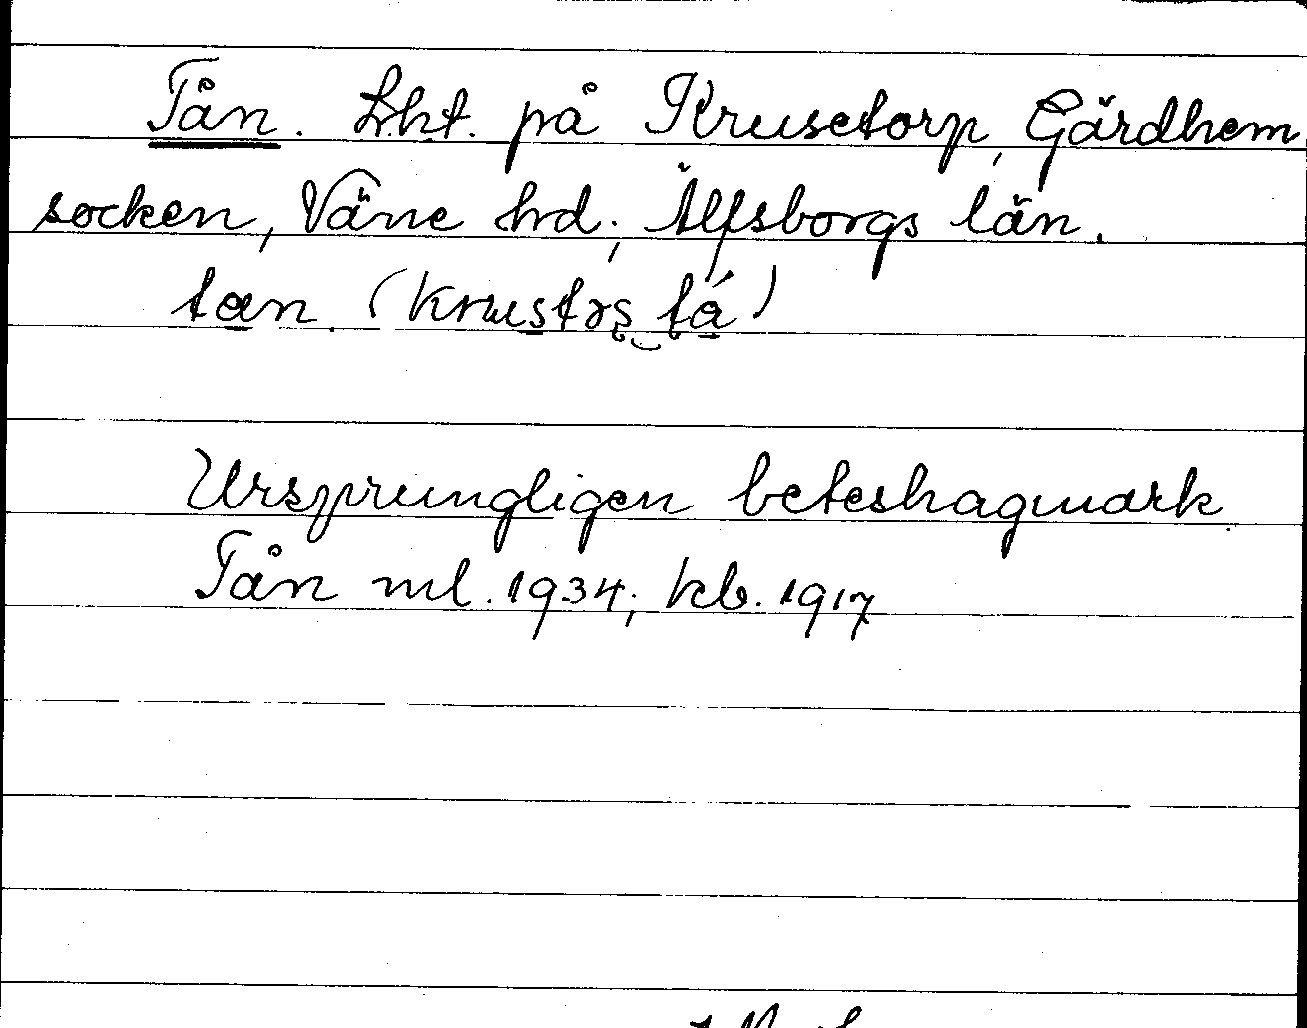 Tån. Lht. på Krusetorp, Gärdhem
socken, Väne hd; Älfsborgs län.
tan. (krustɤs tá)
Ursprungligen beteshagmark.
Tån ml. 1934; kb. 1917